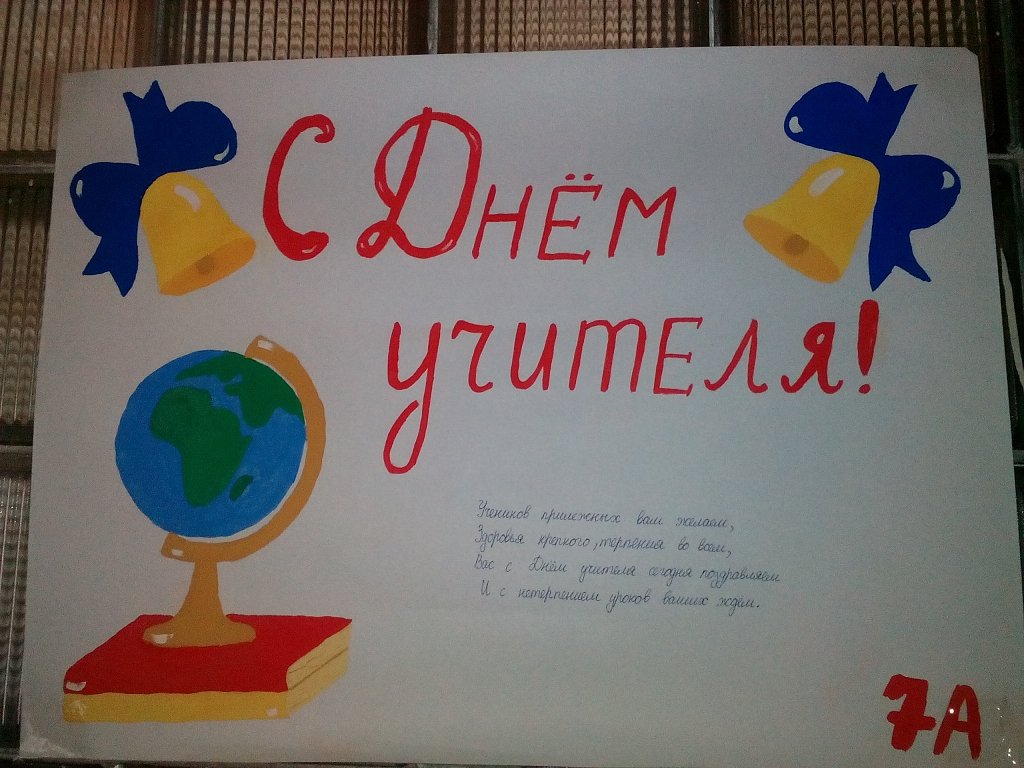 С Днём
учителя!
Учеников прилежных вам желаем,
Здоровья крепкого, терпения во всем,
Вас с Днём учителя сегодня поздравляем
И с нетерпением уроков ваших ждём.
7А